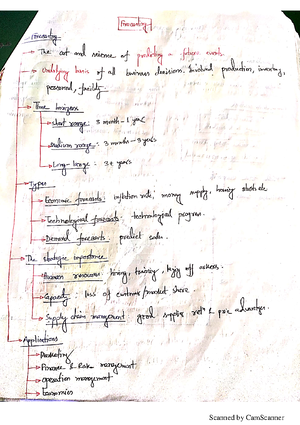 Forecasting
Forecasting
The art and science of predicting future events.
Underlying basis of all business decisions. Involved production, inventory,
personnel, facility.
Time horizons
Short range: 3 month - 1 year
Medium range: 3 month - 3 years
Long-range: 3+ years
Types
Economic forecasts: inflation rate, money supply, housing starts etc
Technological forecasts: technological progress.
Demand forecasts: product sales.
The strategic importance
Human resources: hiring, training, laying off workers.
Capacity: loss of customer/market share
Supply chain management: good supplier reln & price advantages.
Applications
Marketing
Finance & Risk management
operation management
Economics
Scanned by CamScanner